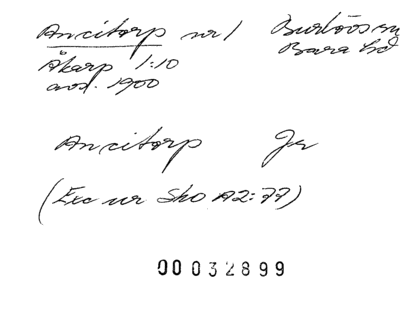 Ancitorp nr 1 Burlövs sn
Åkarp 1:10 Bara hd
avs. 1900
Ancitorp Jr
(Exc ur Sko A2:77)
00032899